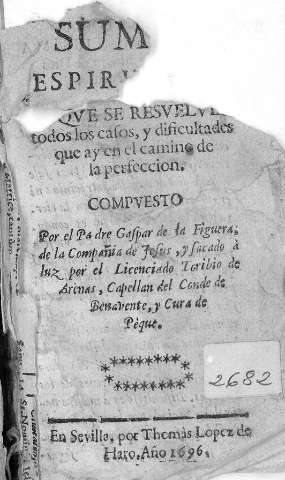 SUM
ESPIRI
QVE SE RESVELVE
todos los casos, y dificultades
que ay en el camino de
la perfeccion.
COMPVESTO
Por el Padre Gaspar de la Figuera,
de la Compañia de Jesus, y sacado à
luz por el Licenciado Toribio de
Arenas, Capellan del Conde de
Benavente, y Cura de
Pèque.
2682
En Sevilla, por Thomàs Lopez de
Haro, Año 1696.